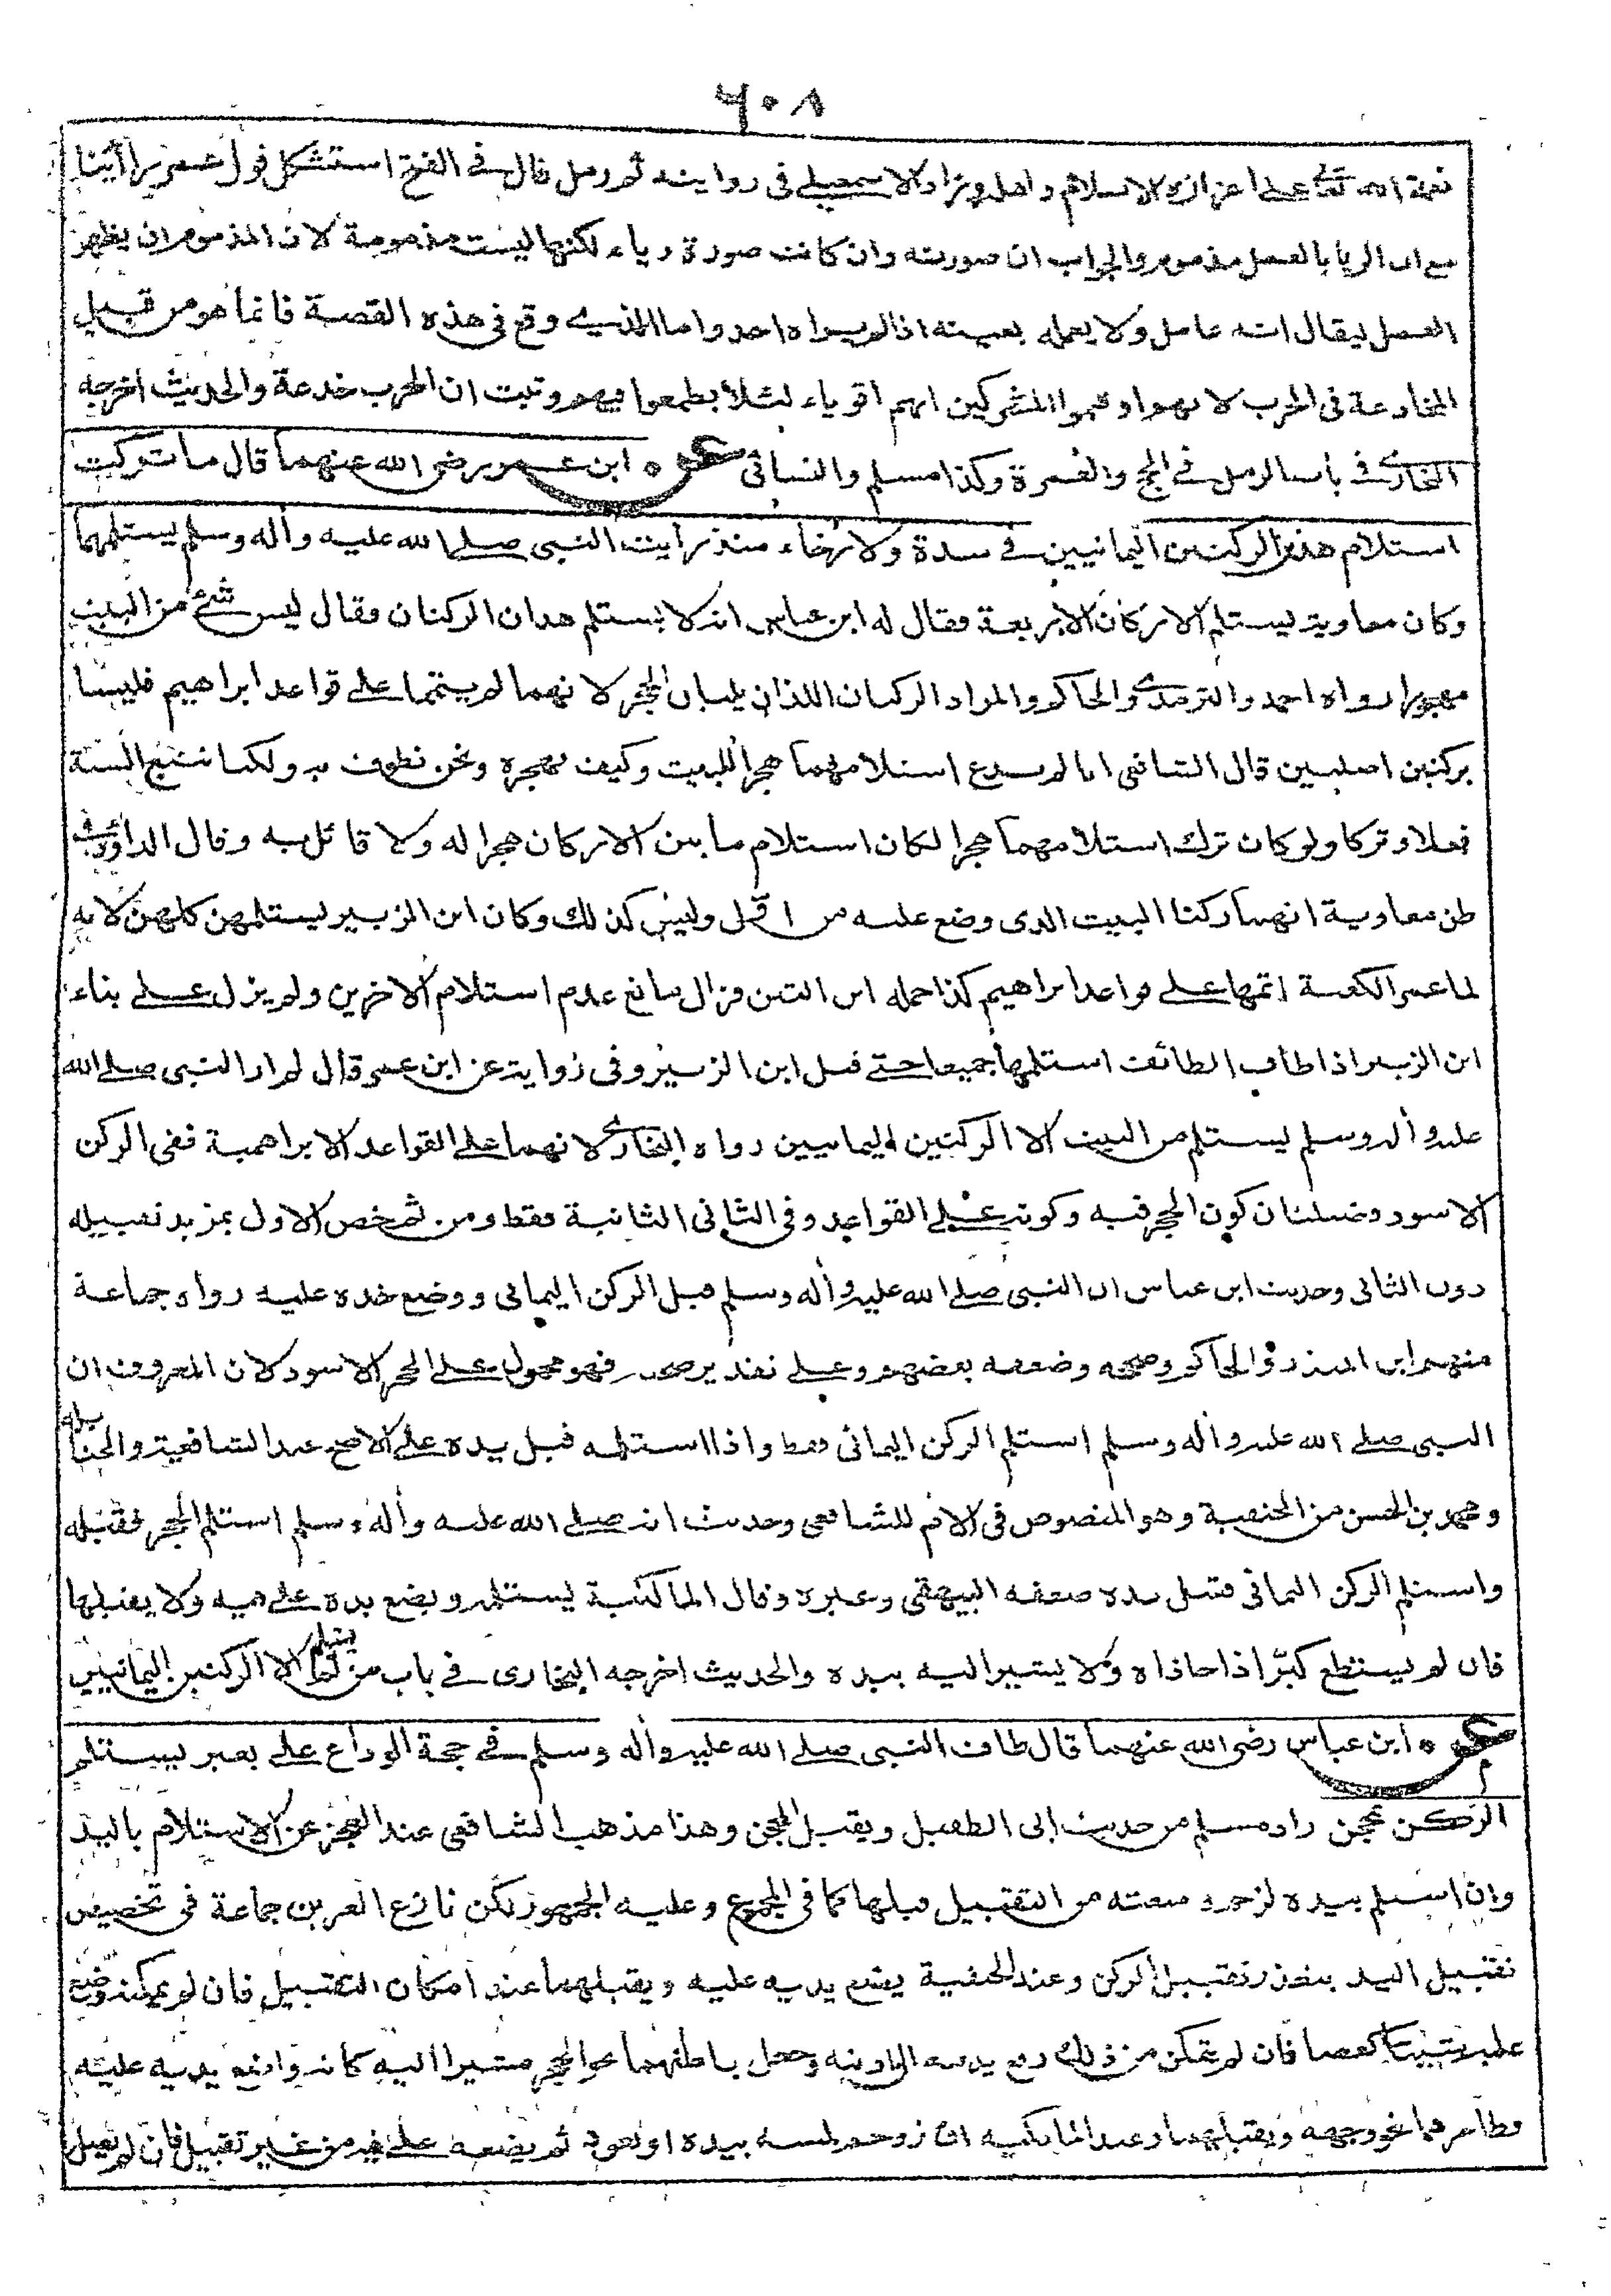 ٦٠٨
نعمة الله تعالى على اعزازه الاسلام واهله وزاد الاسمعيلي في روايته ثم رمل قال في الفتح استشكل قول عمر راأينا
مع ان الريا بالعمل مذموم والجواب ان صورته وان كانت صورة رياء لكنها ليست مذمومة لان المذموم ان يظهر
العمل ليقال انه عامل ولا يعمله بعينه اذا لم يراه احد واما الذي وقع في هذه القصة فانما هو من قبيل
المخادعة في الحرب لانهم اوهموا المشركين انهم اقوياء لئلا يطمعوا فيهم وثبت ان الحرب خدعة والحديث اخرجه
البخاري في باب الرمل في الحج والعمرة وكذا مسلم والنسائي عن ه ابن عمر رضي الله عنهما قال ما تركت
استلام هذين الركنين اليمانيين في شدة ولا رخاء منذ رأيت النبي صلى الله عليه وأله وسلم يستلمهما
وكان معاوية يستلم الاركان الاربعة فقال له ابن عباس انه لا يستلم هدان الركنان فقال ليس شئ من البيت
مهجورا رواه احمد والترمذي والحاكم والمراد الركنان اللذان يليان الحجر لانهما لم يتمما على قواعد ابراهيم فليسا
بركنين اصليين قال الشافعي انا لم ندع استلامهما هجرا للبيت وكيف نهجره ونحن نطوف به ولكنا نتبع السنة
فعلا وتركا ولو كان ترك استلامهما هجرا لكان استلام ما بين الاركان هجرا له ولا قائل به وقال الداؤدي
ظن معاوية انهما ركنا البيت الذي وضع عليه من اول وليس كذلك وكان ابن الزبير يستلمهن كلهن لانه
لما عمر الكعبة اتمها على قواعد ابراهيم كذا حمله ابن التين فزال مانع عدم استلام الاخرين ولم يزل على بناء
ابن الزبير اذا طاف الطائف استلمها جميعا حتى قتل ابن الزبير وفي رواية عن ابن عمر قال لم ار النبي صلى الله
عليه وأله وسلم يستلم من البيت الا الركنين اليمانيين رواه البخاري لانهما على القواعد الابراهمية ففي الركن
الاسود فضيلتان كون الحجر فيه وكونه على القواعد وفي الثاني الثانية فقط ومن ثم خص الاول بمزيد تقبيله
دون الثاني وحديث ابن عباس ان النبي صلى الله عليه وأله وسلم قبل الركن اليماني ووضع خده عليه رواه جماعة
منهم ابن المنذر والحاكم وصححه وضعفه بعضهم وعلى تقدير صحته فهو محمول على الحجر الاسود لان المعروف ان
النبي صلى الله عليه وأله وسلم استلم الركن اليماني فقط واذا استلمه قبل يده على الاصح عند الشافعية والحنابلة
ومحمد بن الحسن من الحنفية وهو المنصوص في الام للشافعي وحديث انه صلى الله عليه وأله وسلم استلم الحجر فقبله
واستلم الركن اليماني فقبل يده ضعفه البيهقي وغيره وقال المالكية يستلمه ويضع يده على فيه ولا يقبلها
فان لم يستطع كبّر اذا حاذاه ولا يشير اليه بيده والحديث اخرجه البخاري في باب من لم يستلم الا الركنين اليمانيين
عن ه ابن عباس رضي الله عنهما قال طاف النبي صلى الله عليه وأله وسلم في حجة الوداع على بعير يستلم
الركن بمحجن زاد مسلم من حديث ابي الطفيل ويقبل المحجن وهذا مذهب الشافعي عند العجز عن الاستلام باليد
وان استلم بيده لزحمة منعته من التقبيل قبلها كما في المجموع وعليه الجمهور لكن نازع العز بن جماعة في تخصيص
تقبيل اليد بتعذر تقبيل الركن وعند الحنفية يضع يديه عليه ويقبلهما عند امكان التقبيل فان لم يمكنه وضع
عليه شيئا كعصا فان لم يتمكن من ذلك رفع يديه الى اذنيه وجعل باطنهما نحو الحجر مشيرا اليه كانه واضع يديه عليه
وظاهرهما نحو وجهه ويقبلهما وعند المالكية ان زوحم لمسه بيده او بعود ثم يضعه على فيه من غير تقبيل فان لم يصل